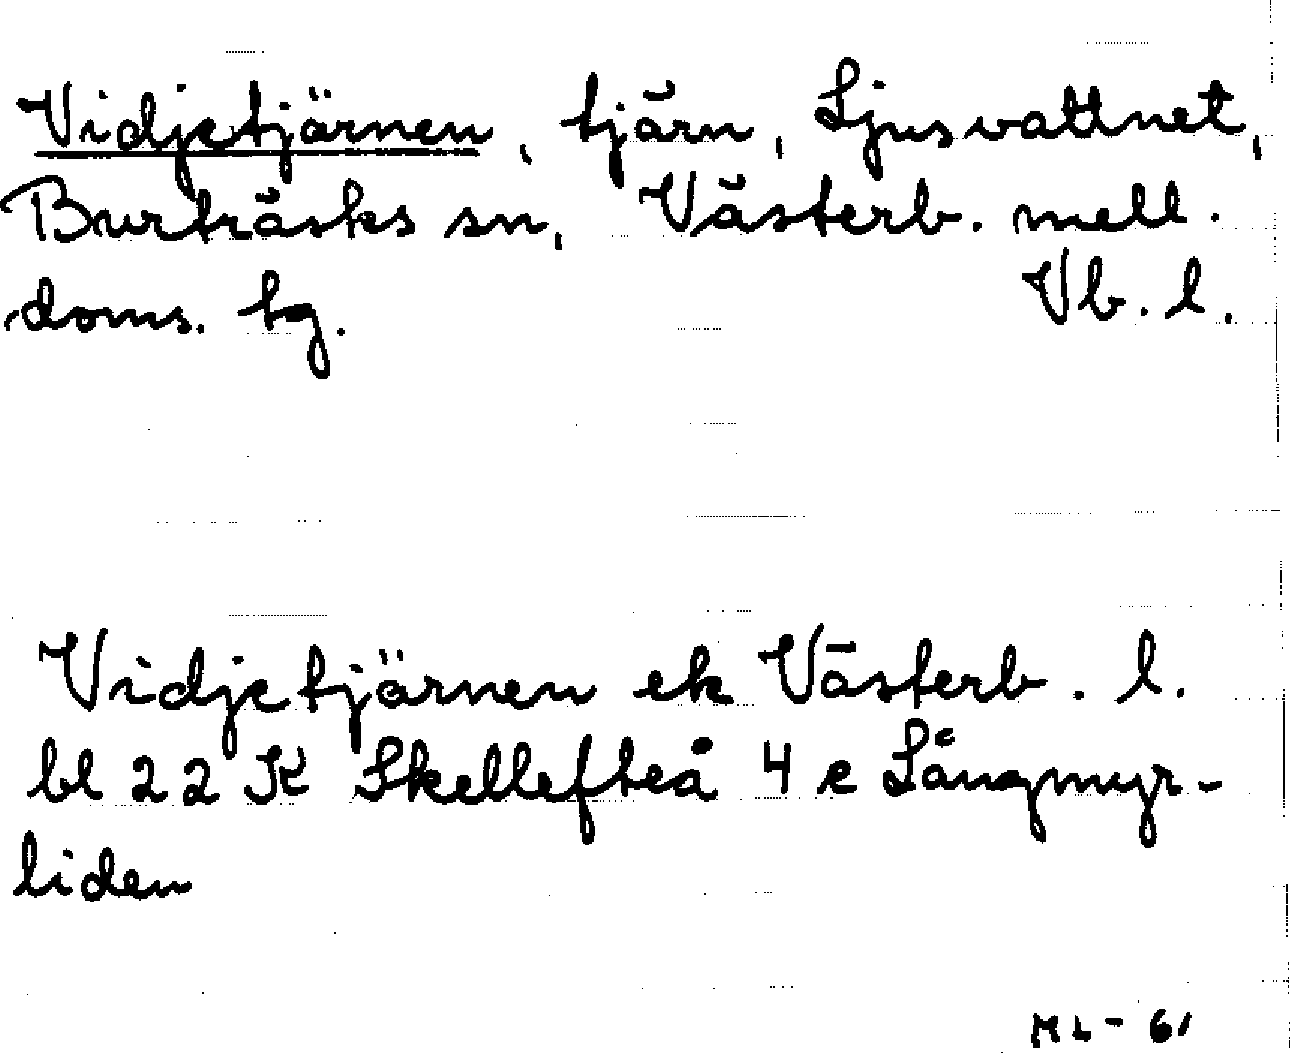 Vidjetjärnen, tjärn, Ljusvattnet,
Burträsks sn, Västerb. mell.
doms. tg. Vb. l.
Vidjetjärnen ek Västerb. l.
bl 22 K Skellefteå 4 e Långmyr-
liden
ML-61